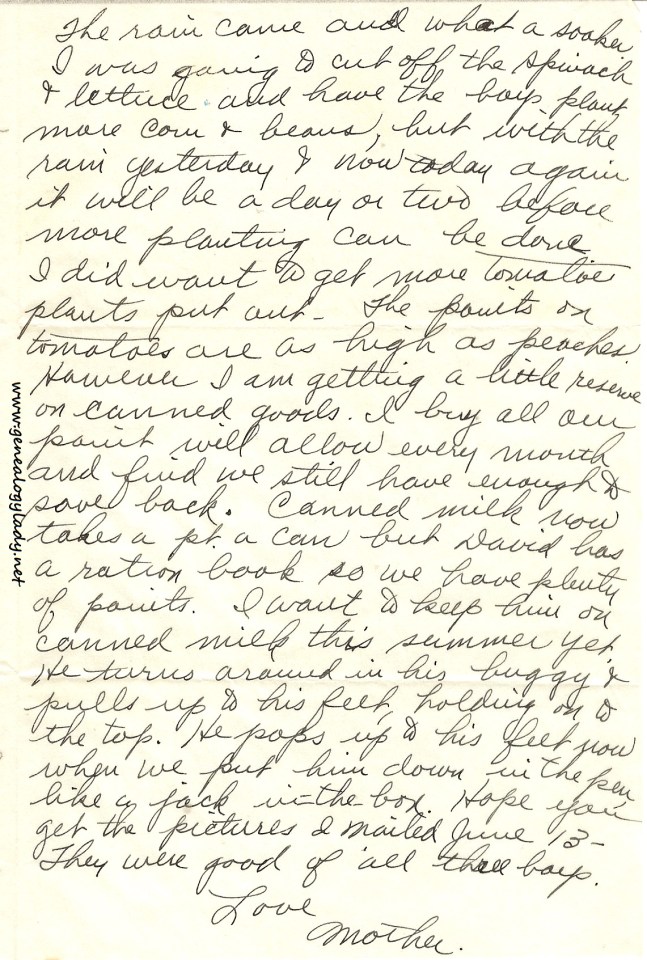 The rain came and what a soaker
I was going to cut off the spinach
& lettuce and have the boys plant
more corn & beans, but with the
rain yesterday & now today again
it will be a day or two before
more planting can be done
I did want to get more tomatoe
plants put out- The points on
tomatoes are as high as peaches.
However I am getting a little reserve
on canned goods. I buy all our
point will allow every month
and find we still have enough to
save back. Canned milk now
takes a pt. a can but David has
a ration book so we have plenty
of points. I want to keep him on
canned milk this summer yet
He turns around in his buggy &
pulls up to his feet, holding on to
the top. He pops up to his feet now
when we put him down in the pen
like a jack in-the-box. Hope you
get the pictures I mailed June 13-
They were good of all three boys.
Love
Mother.
www.genealogylady.net